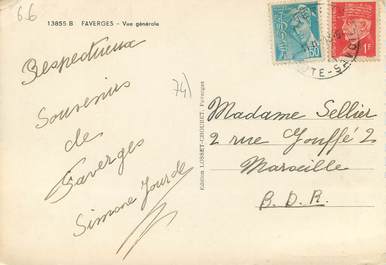 6.6
13855 B - FAVERGES - Vue générale
50
1F
TE-SAVOIE
Respectueux
Souvenirs
de
Faverges
Simone Jourde
74)
Edition LOSSET-CHOURET, Faverges
Madame Sellier
2 rue Jouffé 2
Marseille
B.D.R.